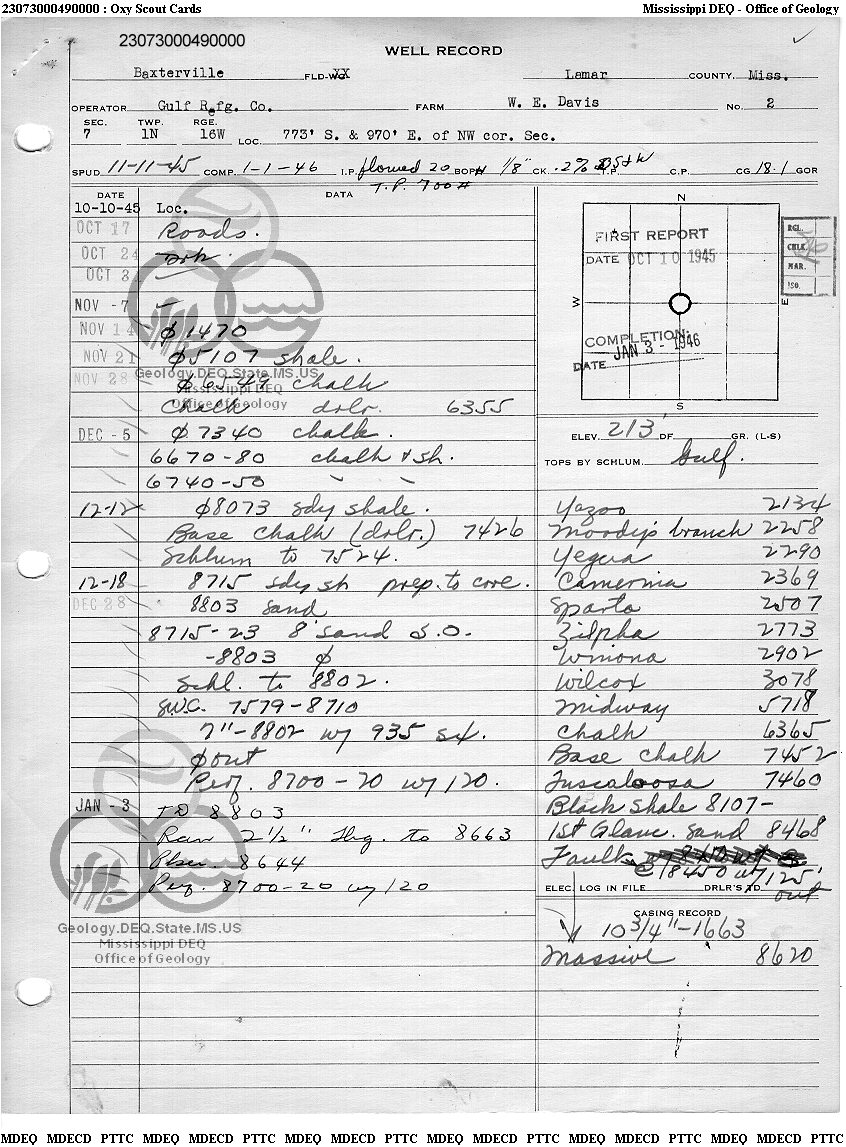 23073000490000 : Oxy Scout Cards Mississippi DEQ - Office of Geology
23073000490000
WELL RECORD
Baxterville FLD-WC XX Lamar COUNTY, Miss.
OPERATOR Gulf Refg. Co. FARM W. E. Davis No. 2
SEC. TWP. RGE.
7 1N 16W LOC. 773' S. & 970' E. of NW cor. Sec.
SPUD 11-11-45 COMP. 1-1-46 I.P. flowed 20 BOPH 1/8" CK .2% BS&W T.P. C.P. CG 18.1 GOR
T.P. 700#
DATE DATA
10-10-45 Loc.
OCT 17 Roads.
OCT 24 Drk.
OCT 31
NOV - 7
NOV 14 φ 1470
NOV 21 φ5107 shale.
NOV 28 φ 6549 chalk
Chalk drlr. 6355
DEC - 5 φ 7340 chalk.
6670-80 chalk & sh.
6740-50 " "
12-12 φ8073 sdy shale.
Base Chalk (drlr.) 7426
Schlum to 7524.
12-18 8715 sdy sh prep. to core.
DEC 28 8803 sand
8715-23 8' sand S.O.
-8803 φ
Schl. to 8802.
S.W.C. 7579-8710
7"-8802 w/ 935 sx.
φout
Perf. 8700-20 w/ 120.
JAN - 3 TD 8803
Ran 2 1/2" Tbg. to 8663
Pkser. 8644
Perf. 8700-20 w/ 120
N
W
E
S
FIRST REPORT
DATE OCT 10 1945
COMPLETION:
DATE JAN 3 - 1946
RGL.
CHLK.
MAR.
ISO.
ELEV. 213' DF GR. (L-S)
TOPS BY SCHLUM. Gulf.
Yazoo 2134
Moody's branch 2258
Yegua 2290
Camerina 2369
Sparta 2507
Zilpha 2773
Winona 2902
Wilcox 3078
Midway 5718
Chalk 6365
Base Chalk 7452
Tuscaloosa 7460
Black Shale 8107-
1st Glauc. Sand 8468
Fault
@ 8450 w/ 125'
out
ELEC. LOG IN FILE DRLR'S TD.
CASING RECORD
10 3/4"-1663
Massive 8620
Geology.DEQ.State.MS.US
Mississippi DEQ
Office of Geology
Geology.DEQ.State.MS.US
Mississippi DEQ
Office of Geology
MDEQ MDECD PTTC MDEQ MDECD PTTC MDEQ MDECD PTTC MDEQ MDECD PTTC MDEQ MDECD PTTC MDEQ MDECD PTTC